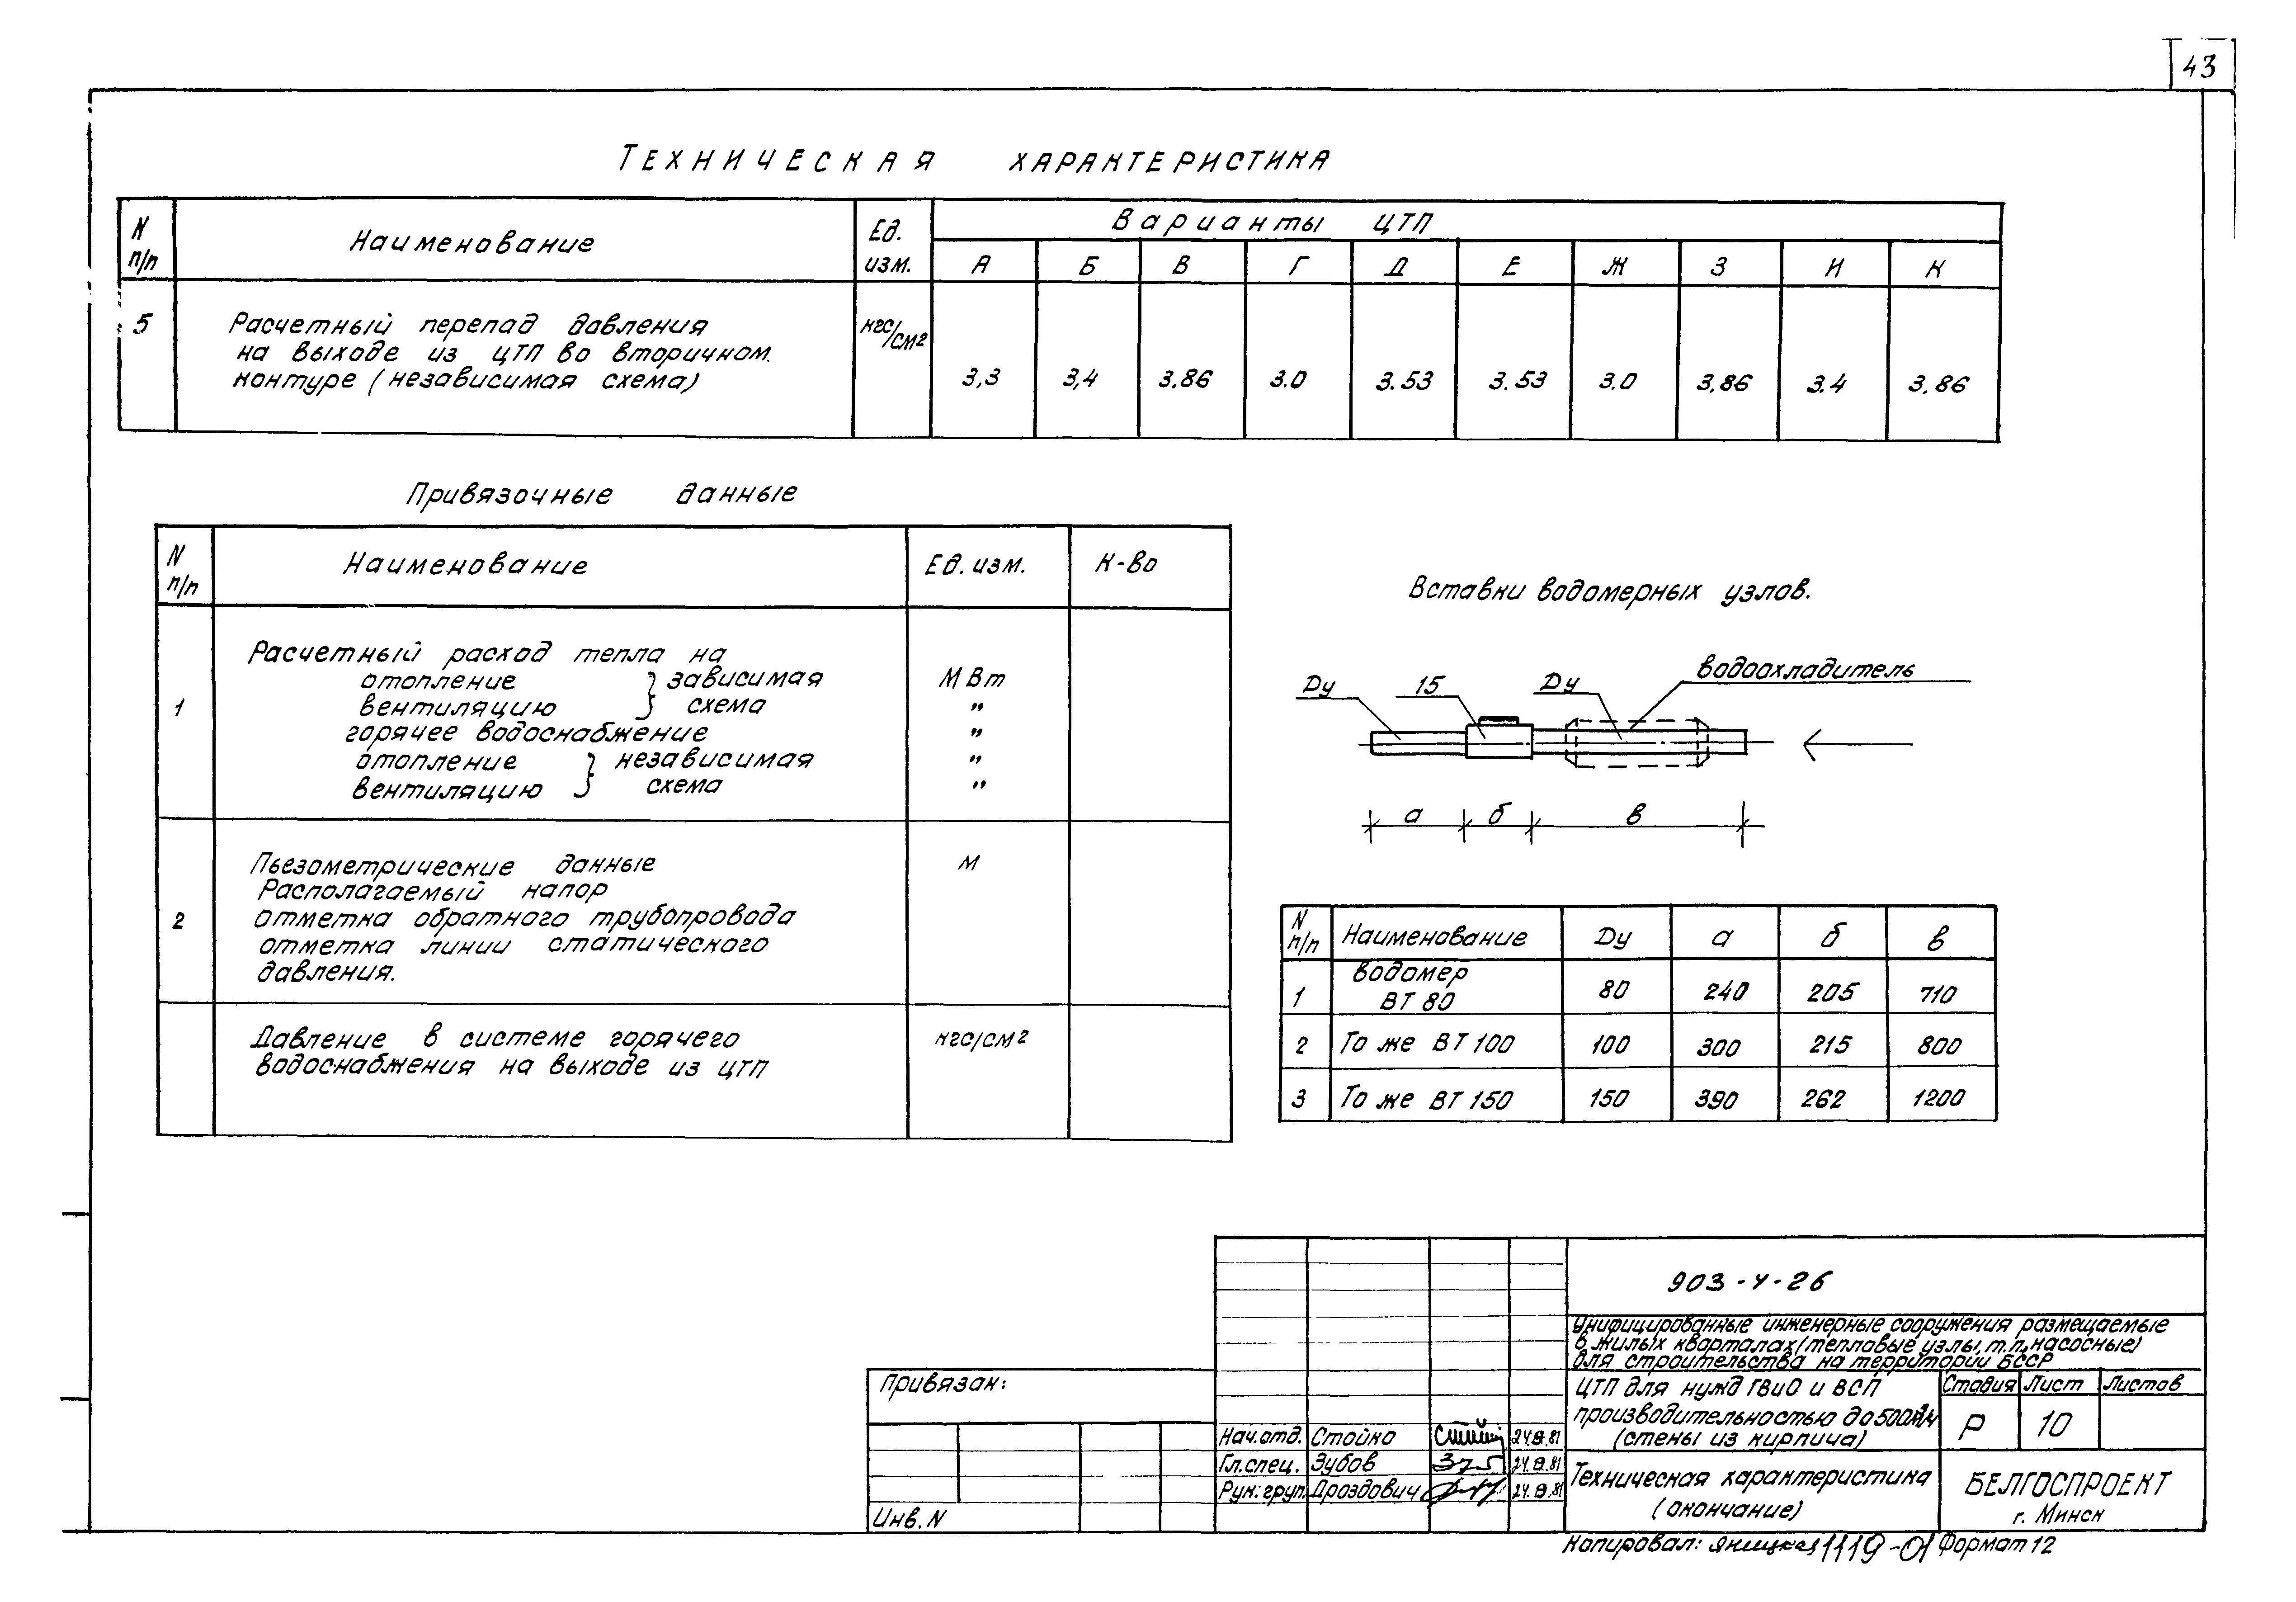 43
Техническая характеристика
N п/п Наименование Ед. изм. Варианты ЦТП
А Б В Г Д Е Ж З И К
5 Расчетный перепад давления кгс/см²
на выходе из ЦТП во вторичном.
контуре (независимая схема) 3,3 3,4 3,86 3.0 3.53 3.53 3.0 3,86 3.4 3,86
Привязочные данные
N п/п Наименование Ед. изм. К-во
Расчетный расход тепла на
отопление } зависимая МВт
1 вентиляцию } схема "
горячее водоснабжение "
отопление } независимая "
вентиляцию } схема "
Пьезометрические данные м
Располагаемый напор
2 отметка обратного трубопровода
отметка линии статического
давления.
Давление в системе горячего кгс/см²
водоснабжения на выходе из ЦТП
Вставки водомерных узлов.
Ду 15 Ду водоохладитель
а б в
N п/п Наименование Ду а б в
1 водомер ВТ 80 80 240 205 710
2 То же ВТ 100 100 300 215 800
3 То же ВТ 150 150 390 262 1200
903-4-26
Унифицированные инженерные сооружения размещаемые
в жилых кварталах (тепловые узлы, т.п., насосные)
для строительства на территории БССР
Привязан:
Инв. N
ЦТП для нужд ГВиО и ВСП
производительностью до 500м³/ч
(стены из кирпича)
Стадия Лист Листов
Р 10
Нач.отд. Стойко 24.
Гл.спец. Зубов 24.
Рук.груп. Дроздович 24.
Техническая характеристика
(окончание)
БЕЛГОСПРОЕКТ
г. Минск
Копировал: 1119-01 Формат 12